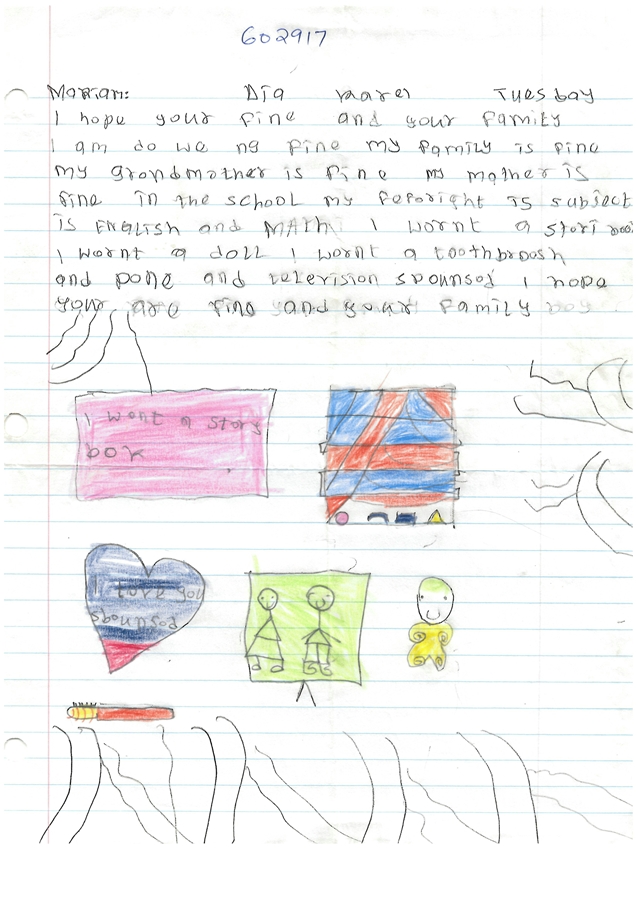 602917
Marriam: Dia Karen Tuesbay
I hope your fine and your family
I am do we ng fine my family is fine
my grandmother is fine my mather is
fine in the school my feforight is subject
is ENGLISH and MATH I wornt a stori
I wornt a doll I wornt a toothbroosh
and pone and television sbounsod I hope
your are fine and your family
I want a story
bok
I love you
sbounsod